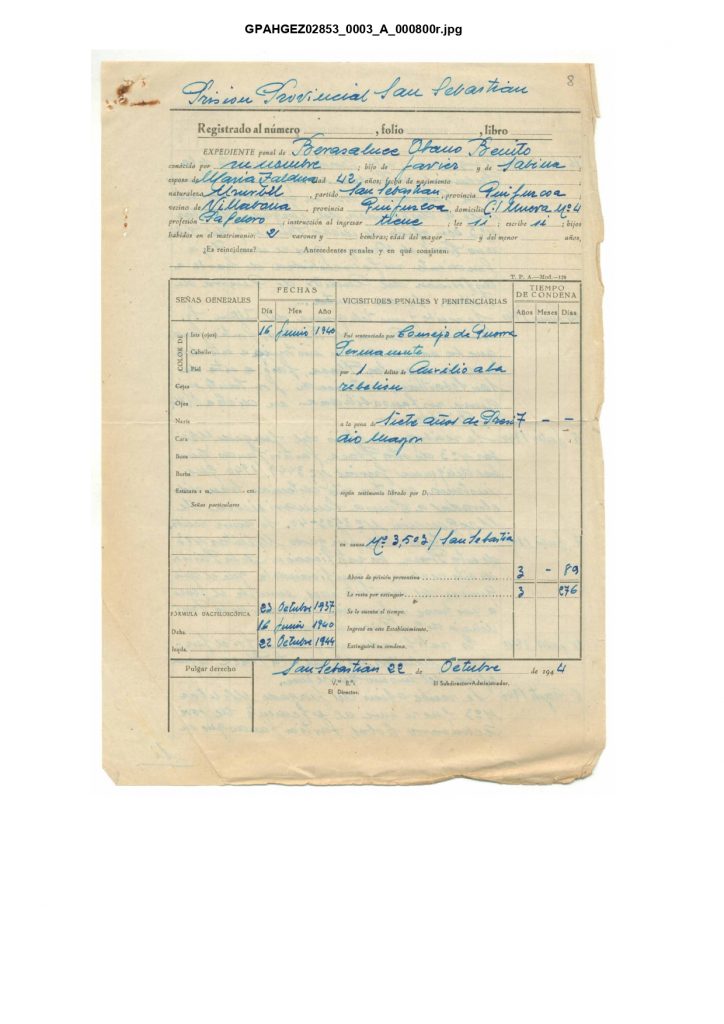 GPAHGEZ02853_0003_A_000800r.jpg
8
Prision Provincial San Sebastian
Registrado al número , folio , libro
EXPEDIENTE penal de Berasaluce Obano Benito
conocido por su nombre ; hijo de Javier y de Sabina
esposo de Maria Zaldua edad 42 años; fecha de nacimiento
naturaleza Usurbil , partido San Sebastian, provincia Guipuzcoa
vecino de Villabona , provincia Guipuzcoa, domicilio C/ Nueva Nº 4
profesión Papelero ; instrucción al ingresar tiene ; lee si ; escribe si ; hijos
habidos en el matrimonio: 2 varones y hembras; edad del mayor y del menor años,
¿Es reincidente? Antecedentes penales y en qué consistan:
T. P. A.—Mod.—120
SEÑAS GENERALES FECHAS VICISITUDES PENALES Y PENITENCIARIAS TIEMPO DE CONDENA
Día Mes Año Años Meses Días
COLOR DE
Iris (ojos) 16 Junio 1940 Fué sentenciado por Consejo de Guerra
Cabello Permanente
Piel por 1 delito de Auxilio a la
Cejas rebelion
Ojos
Nariz a la pena de Siete años de Presi 7 - -
Cara dio Mayor
Boca
Barba
Estatura 1 m. cm. según testimonio librado por D.
Señas particulares
en causa Nº 3,503/San Sebastia
Abono de prisión preventiva 3 - 89
Le resta por extinguir 3 276
23 Octubre 1937 Se le cuenta el tiempo.
FORMULA DACTILOSCÓPICA
Dcha. 16 Junio 1940 Ingresó en este Establecimiento.
Izqda. 22 Octubre 1944 Extinguirá su condena.
Pulgar derecho San Sebastian 22 de Octubre de 1944
V.º B.º: El Subdirector-Administrador,
El Director,